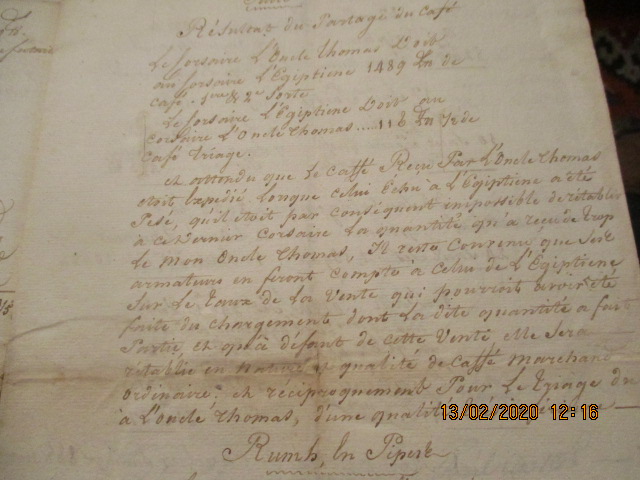 Résultat du Partage du Café
Le Corsaire L'Oncle Thomas Doit
au Corsaire L'Egiptiene 1489 de
café. 1ere & 2e Sorte
Le Corsaire L'Egiptiene Doit au
corsaire L'Oncle Thomas.....118 de
café triage.
et attendu que Le Caffé Reçu Par L'Oncle Thomas
étoit Expedié Lorsque celui Echu a L'Egiptiene a été
Pesé, qu'il étoit par conséquent impossible de rétablir
a ce Dernier Corsaire La quantité qu'a reçue de trop
Le mon Oncle Thomas, Il reste Convenu que
armateurs en feront compte à Celui de L'Egiptiene
Sur Le Taux de La Vente qui pourroit avoir été
faite du Chargement dont La dite quantité a fait
Partie, et qu'à défaut de cette Vente Elle Sera
rétablie en nature & qualité de Caffé marchand
ordinaire. et réciproquement Pour Le triage du
à L'oncle Thomas, d'une qualité
13/02/2020 12:16